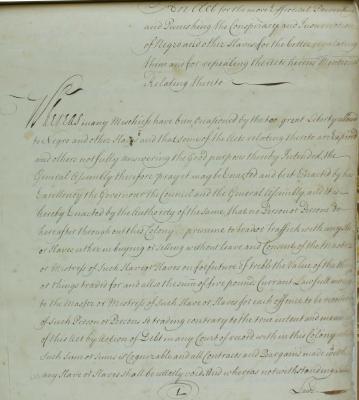 An Act for the more Effectual Preventing
and Punishing the Conspiracy and Insurrection
of Negro and other Slaves for the better regulating
them and for repealing the Acts herein Mentioned
Relating thereto
Whereas many Mischiefs have been Occasioned by the too great Liberty allowed
to Negro and other Slaves and that some of the Acts relating thereto are Expired
and others not fully answering the Good purpose thereby Intended, the
General Assembly therefore pray it may be Enacted and be it Enacted by his
Excellency the Governour the Council and the General Assembly and it is
hereby Enacted by the Authority of the same, that no Person or Persons do
hereafter throughout this Colony presume to trade or Traffick with any Slave
or Slaves either in buying or Selling without leave and Consent of the Master
or Mistress of such Slave or Slaves on forfeiture of treble the Value of the thing
or things traded for and also the sum of five pounds Currant Lawfull money
to the Master or Mistress of such Slave or Slaves for each offence to be
of such Person or Persons so trading contrary to the true intent and meaning
of this Act by Action of Debt in any Court of record with in this Colony
such Sum or Sums is Cognizable and all Contracts and Bargains made with
any Slave or Slaves shall be utterly void And whereas notwithstanding
L